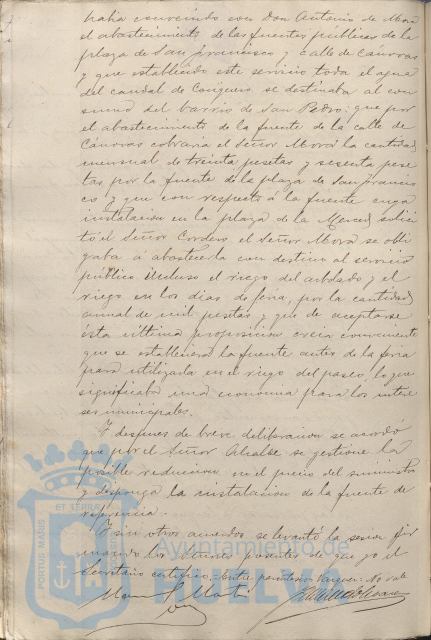 había convenido con Don Antonio de Mora
el abastecimiento de las fuentes públicas de la
plaza de San Francisco y calle de Cánovas
y que establecido este servicio toda el agua
del caudal de Conquero se destinaba al con
sumo del barrio de San Pedro: que por
el abastecimiento de la fuente de la calle de
Cánovas cobraría el Señor Mora la cantidad
mensual de treinta pesetas y sesenta pese
tas por la fuente de la plaza de San Francis
co y que con respecto á la fuente cuya
instalacion en la plaza de la Merced solici
tó el Señor Cordero el Señor Mora se obli
gaba á abastecerla con destino al servicio
público incluso el riego del arbolado y el
riego en los dias de feria, por la cantidad
annual de mil pesetas y que de aceptarse
ésta última proposicion creia conveniente
que se estableciera la fuente antes de la feria
para utilizarla en el riego del paseo, lo que
significaba una economia para los intere
ses municipales.
Y despues de breve deliberacion se acordó
que por el Señor Alcalde se gestione la
posible reduccion en el precio del suministro
y disponga la instalacion de la fuente de
referencia.
Y sin otros acuerdos se levantó la sesion fir
mando los Señores presentes de que yo el
Secretario certifico. Entre paréntesis No vale
PORTUS MARIS ET TERRAE
Ayuntamiento de
HUELVA